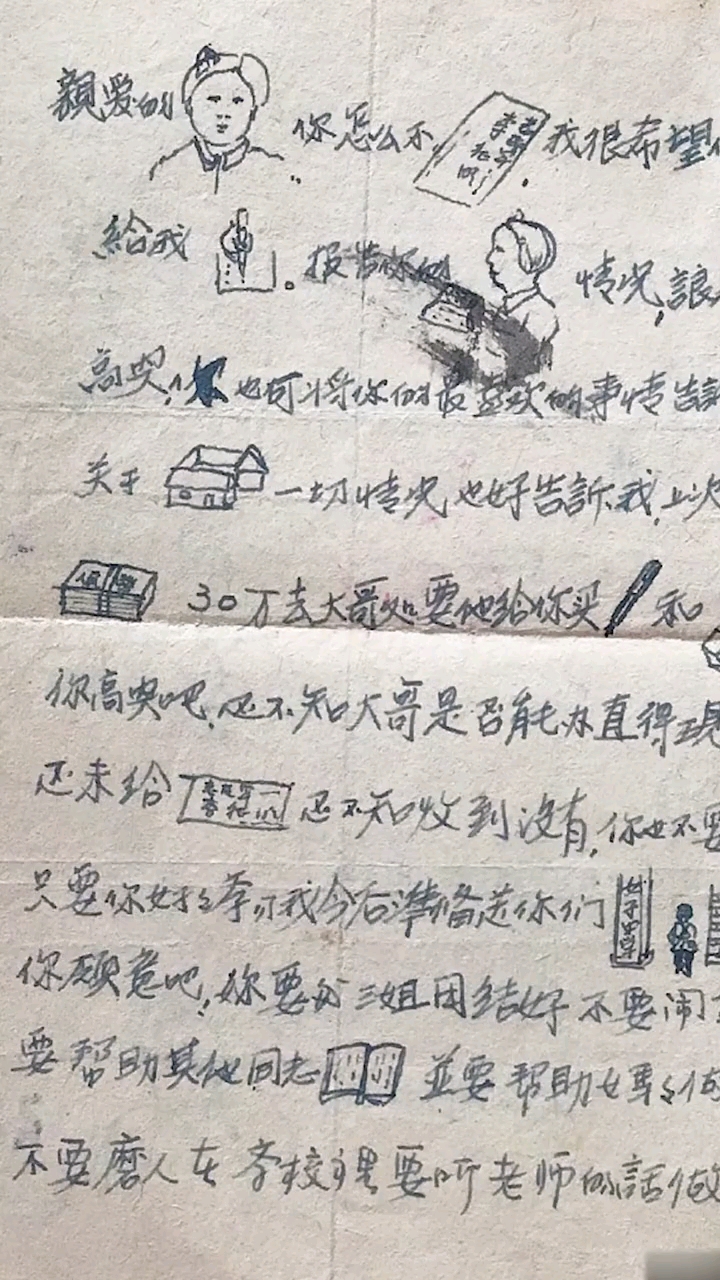 親爱的 你怎么不 我很希望
給我 。报告你的 情况,讓
高興,你也可将你的最喜欢的事情告訴
关于 一切情况也好告訴我,上次
30万去大哥处要他给你买 和
你高興吧,还不知大哥是否能办直得
还未给 还不知收到没有,你也不要
只要你好好学习我今后準备送你们 女子中学
你願意吧,妳要与三姐团结好不要闹
要帮助其他同志 並要帮助妈妈做
不要磨人在学校里要听老师的話做